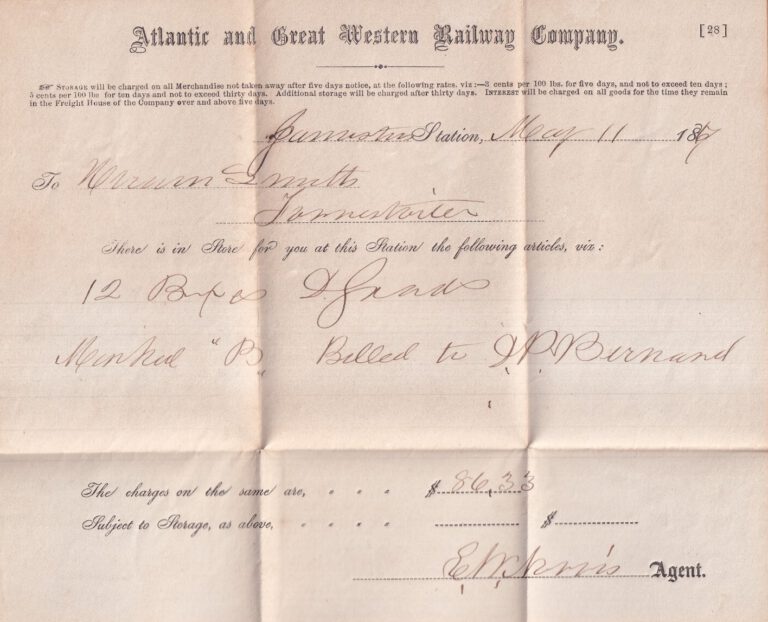 Atlantic and Great Western Railway Company. [28]
STORAGE will be charged on all Merchandise not taken away after five days notice, at the following rates. viz:—3 cents per 100 lbs. for five days, and not to exceed ten days;
5 cents per 100 lbs for ten days and not to exceed thirty days. Additional storage will be charged after thirty days. INTEREST will be charged on all goods for the time they remain
in the Freight House of the Company over and above five days.
Station, May 11 186
To Smith
There is in Store for you at this Station the following articles, viz:
12 Boxes D. Goods
Marked "B" Billed to
The charges on the same are, " " " $ 86,33
Subject to Storage, as above, " " " " $
Agent.